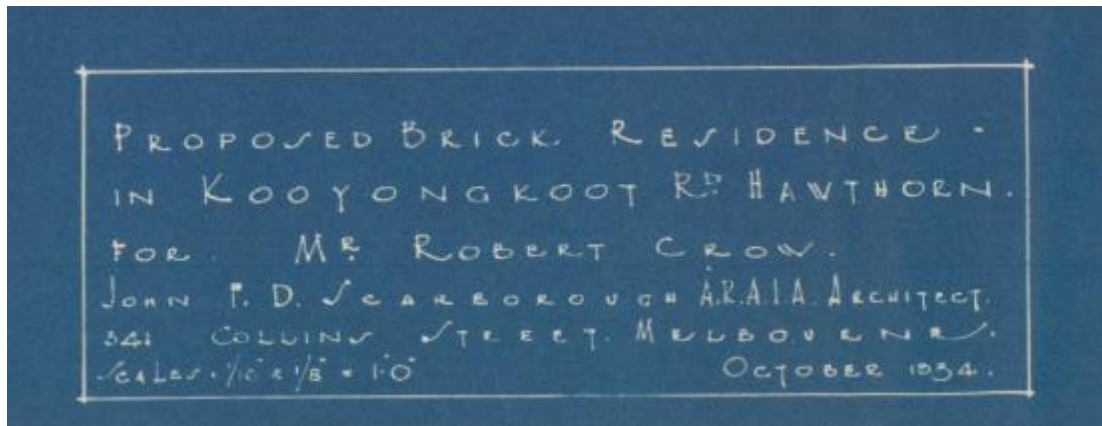 PROPOSED BRICK RESIDENCE -
IN KOOYONGKOOT RD HAWTHORN.
FOR. MR ROBERT CROW.
JOHN F. D. SCARBOROUGH A.R.A.I.A. ARCHITECT.
341 COLLINS STREET. MELBOURNE.
SCALES · 1/16" & 1/8" = 1'·0"
OCTOBER 1934.